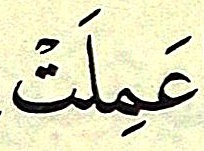 عَمِلَتْ